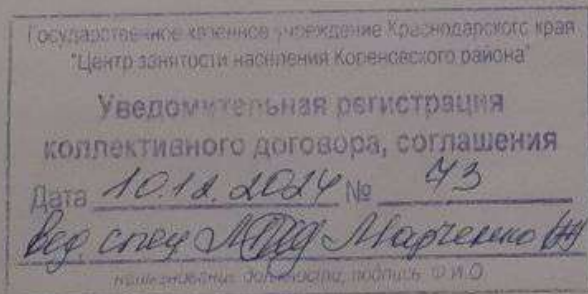 Государственное казенное учреждение Краснодарского края
"Центр занятости населения Кореновского района"
Уведомительная регистрация
коллективного договора, соглашения
Дата 10.12.2024 № 73
вед. спец Марченко
наименование должности, подпись Ф.И.О